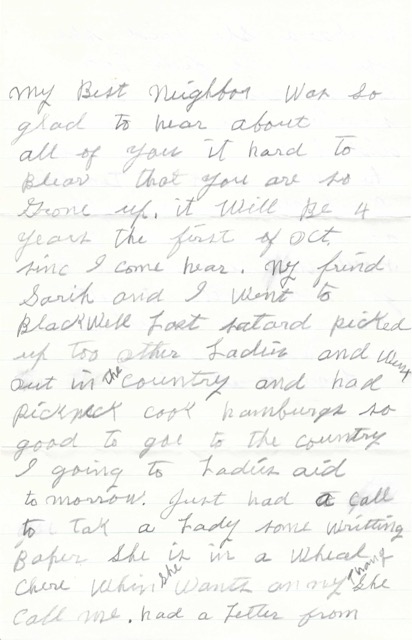 My Best Neighbor Was so
glad to hear about
all of you it hard to
Bleav that you are so
Grone up. it Will Be 4
years the first of Oct.
sinc I come hear. My frind
Sarih and I Went to
BlackWell Last satard picked
up too other Ladies and Went
out in the Country and had
Pickneck cook hamburgs so
good to goe to the country
I going to Ladies aid
tomorrow. Just had a call
to tak a Lady some Writting
Paper She is in a Wheal
Chere Whin She Wants an my Thang She
Call me. had a Letter from